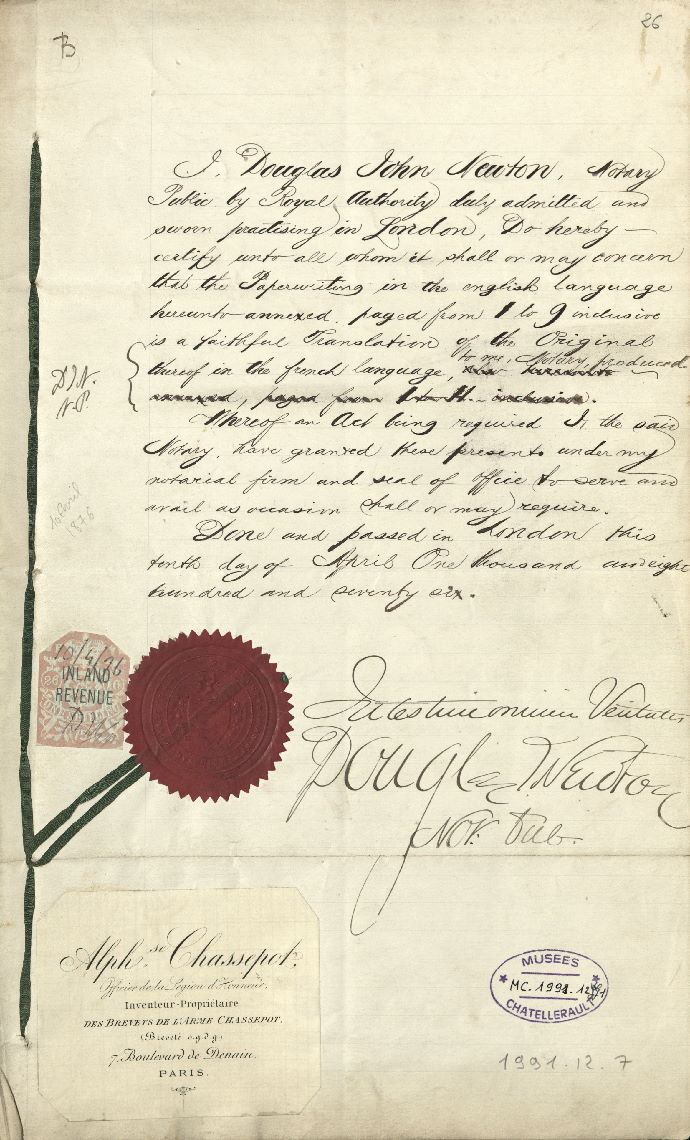 26
B
I, Douglas John Newton, Notary
Public by Royal Authority duly admitted and
sworn practising in London, Do hereby —
certify unto all whom it shall or may concern
that the Paperwriting in the english language
hereunto annexed, paged from 1 to 9 inclusive
is a faithful Translation of the Original
to me, Notary, produced
thereof in the french language, also hereunto
annexed, paged from 1 to 11 inclusive.
D.J.N.
N.P.
Whereof an Act being required I, the said
Notary, have granted these presents under my
notarial firm and seal of office to serve and
avail as occasion shall or may require.
10 Avril
1876
Done and passed in London this
tenth day of April One thousand and eight
hundred and seventy six.
10/4/76
INLAND
REVENUE
In testimonium Veritatis
Douglas J Newton
Not. Pub.
Alph.se Chassepot,
Officier de la Légion d'Honneur,
Inventeur-Propriétaire
DES BREVETS DE L'ARME CHASSEPOT.
(Breveté s.g.d.g.)
7, Boulevard de Denain,
PARIS.
MUSEES
MC. 1991.12.
CHATELLERAULT
1991.12.7